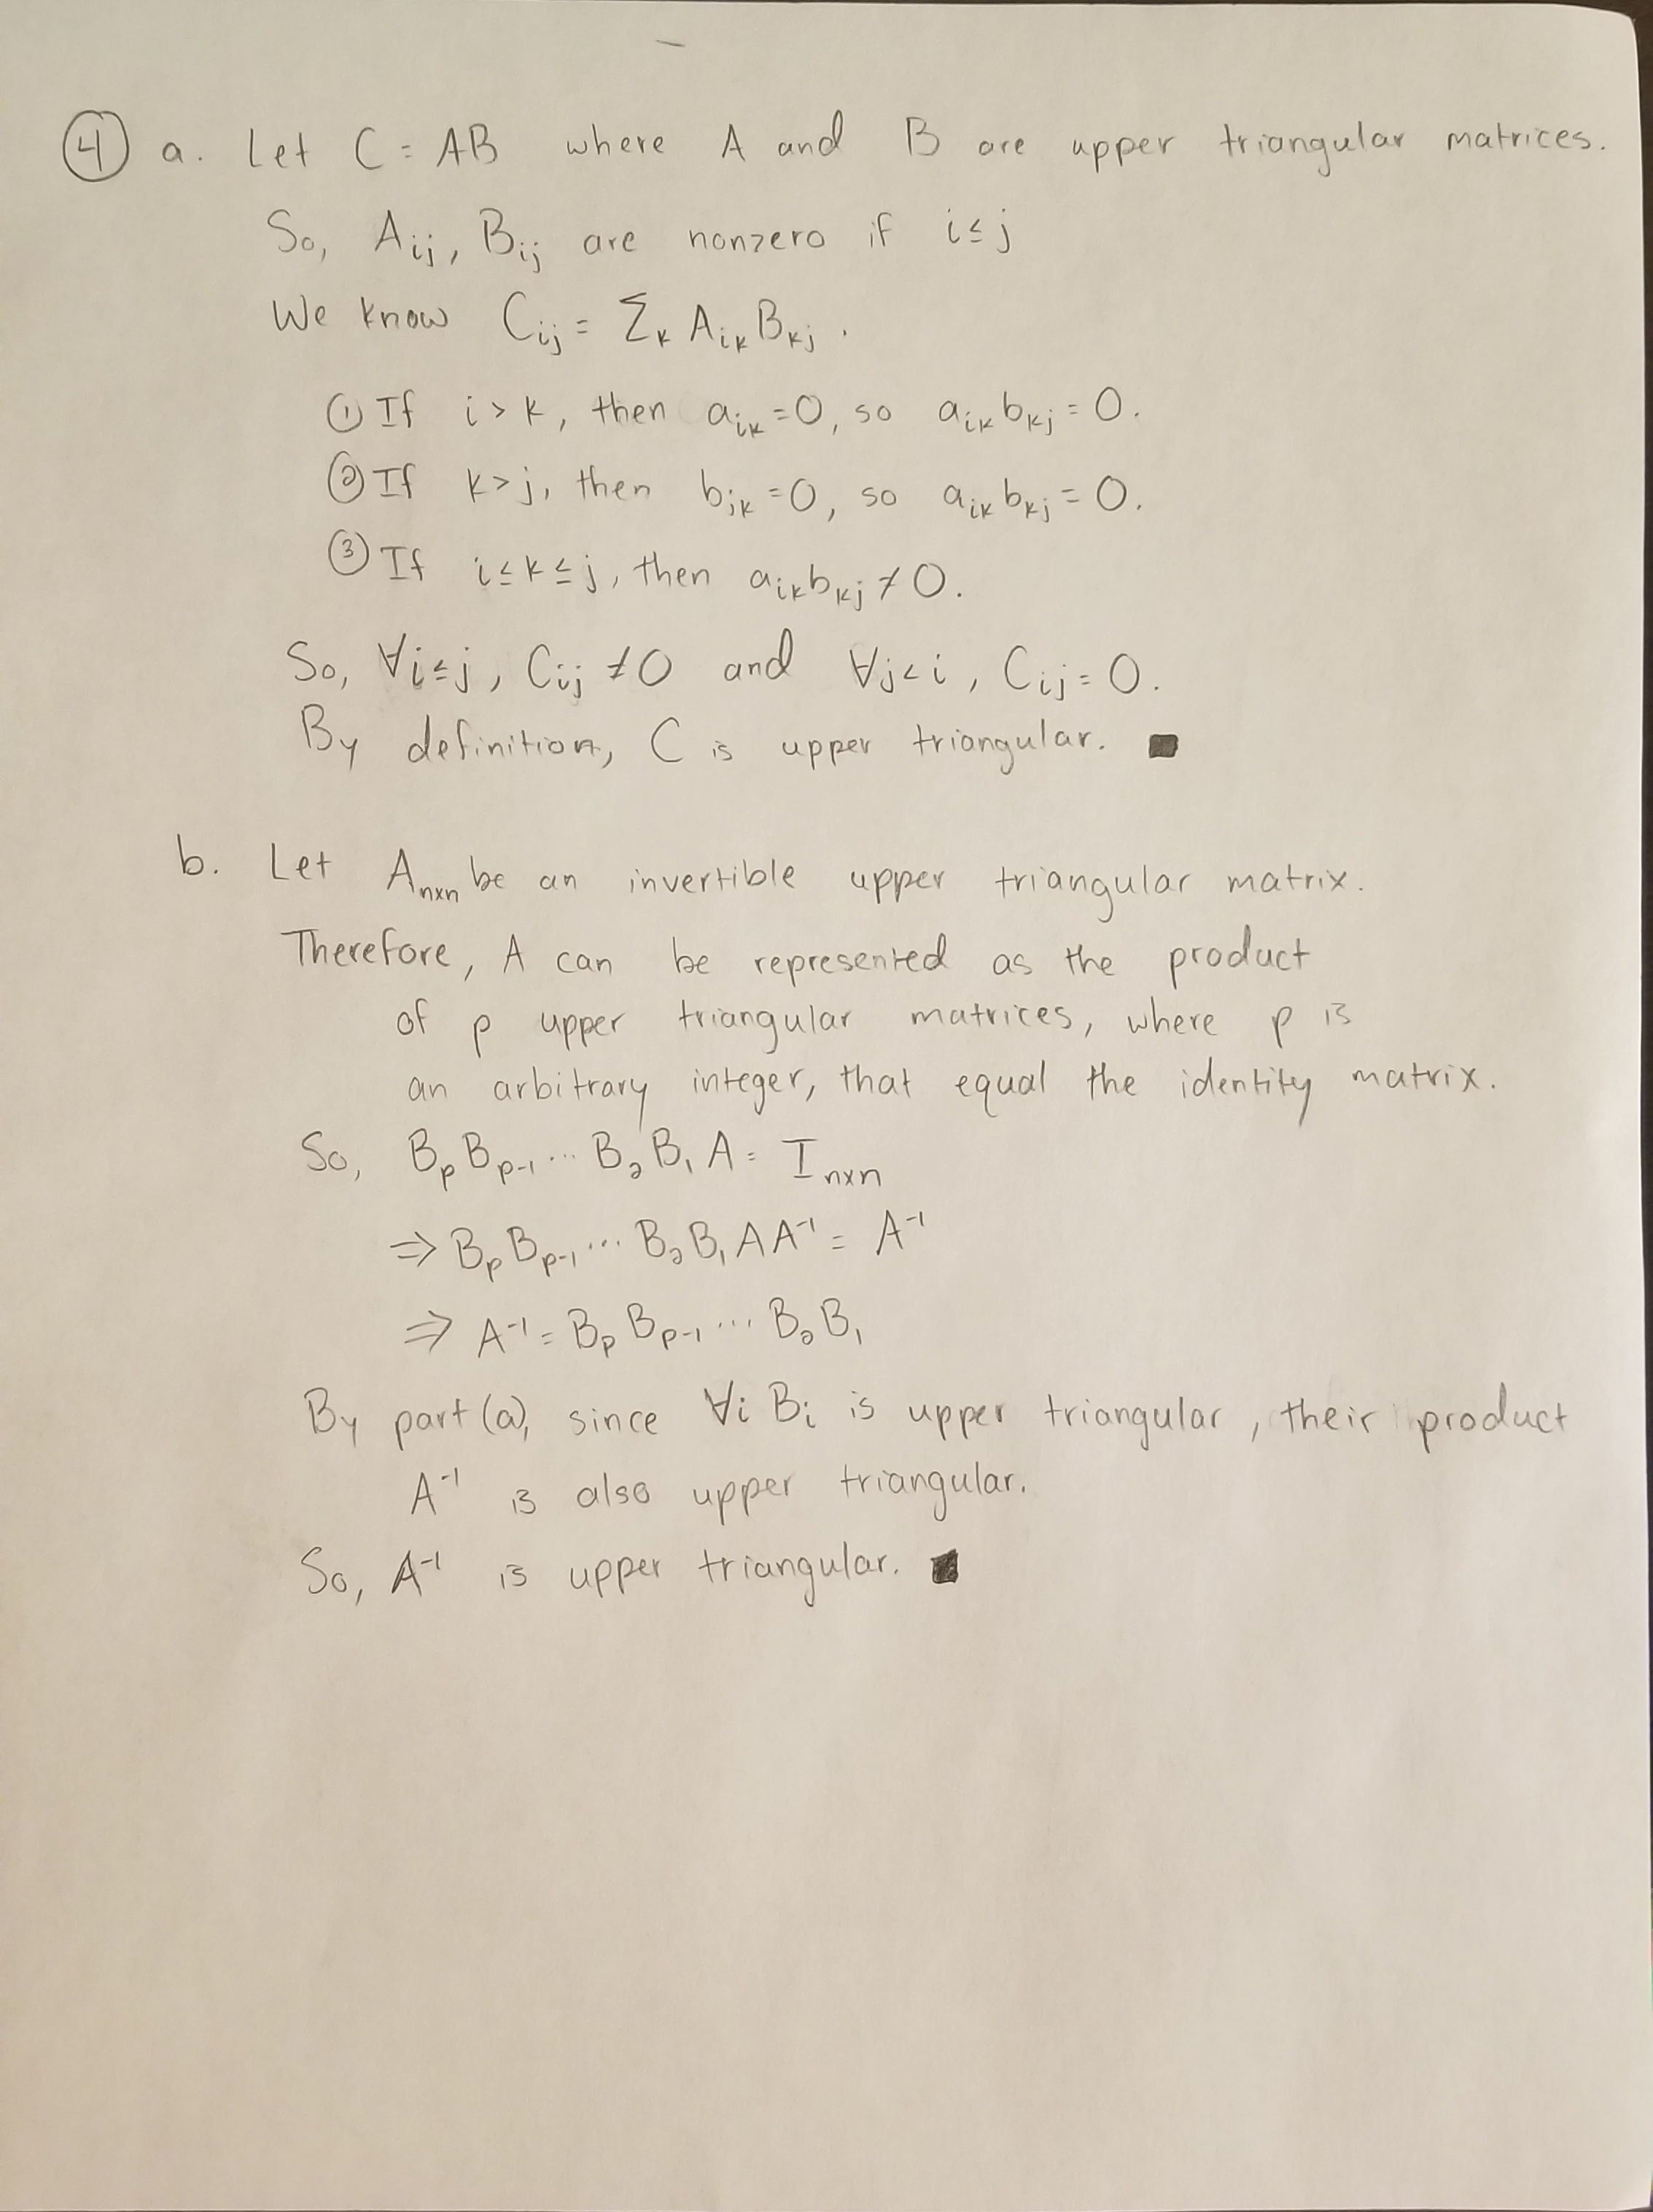 ④ a. Let C = AB where A and B are upper triangular matrices.
So, Aᵢⱼ, Bᵢⱼ are nonzero if i ≤ j
We know Cᵢⱼ = Σₖ AᵢₖBₖⱼ.
① If i > k, then aᵢₖ = 0, so aᵢₖbₖⱼ = 0.
② If k > j, then bⱼₖ = 0, so aᵢₖbₖⱼ = 0.
③ If i ≤ k ≤ j, then aᵢₖbₖⱼ ≠ 0.
So, ∀i ≤ j, Cᵢⱼ ≠ 0 and ∀j < i, Cᵢⱼ = 0.
By definition, C is upper triangular. ■
b. Let Aₙₓₙ be an invertible upper triangular matrix.
Therefore, A can be represented as the product
of p upper triangular matrices, where p is
an arbitrary integer, that equal the identity matrix.
So, BₚBₚ₋₁ ··· B₂B₁A = Iₙₓₙ
⇒ BₚBₚ₋₁ ··· B₂B₁AA⁻¹ = A⁻¹
⇒ A⁻¹ = BₚBₚ₋₁ ··· B₂B₁
By part (a), since ∀i Bᵢ is upper triangular, their product
A⁻¹ is also upper triangular.
So, A⁻¹ is upper triangular. ■